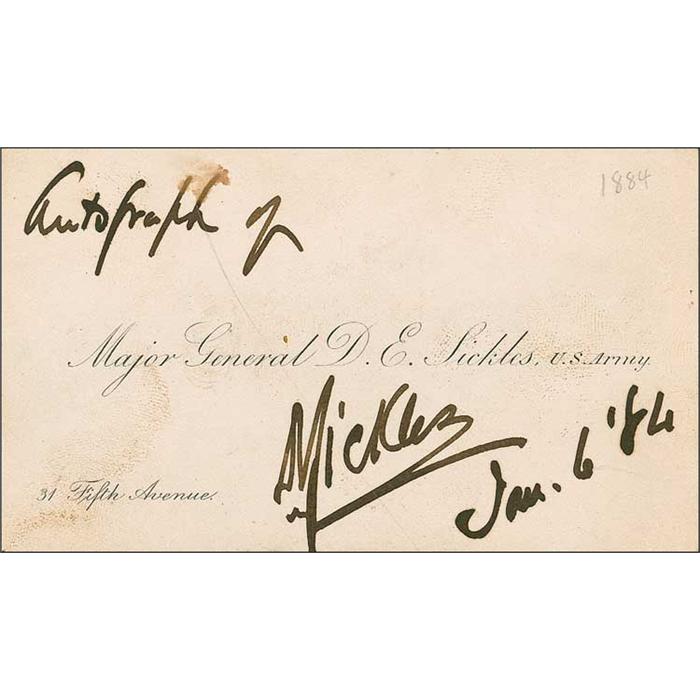 Autograph of
1884
Major General D. E. Sickles, U.S. Army.
Sickles
31 Fifth Avenue.
Jan. 6 '84